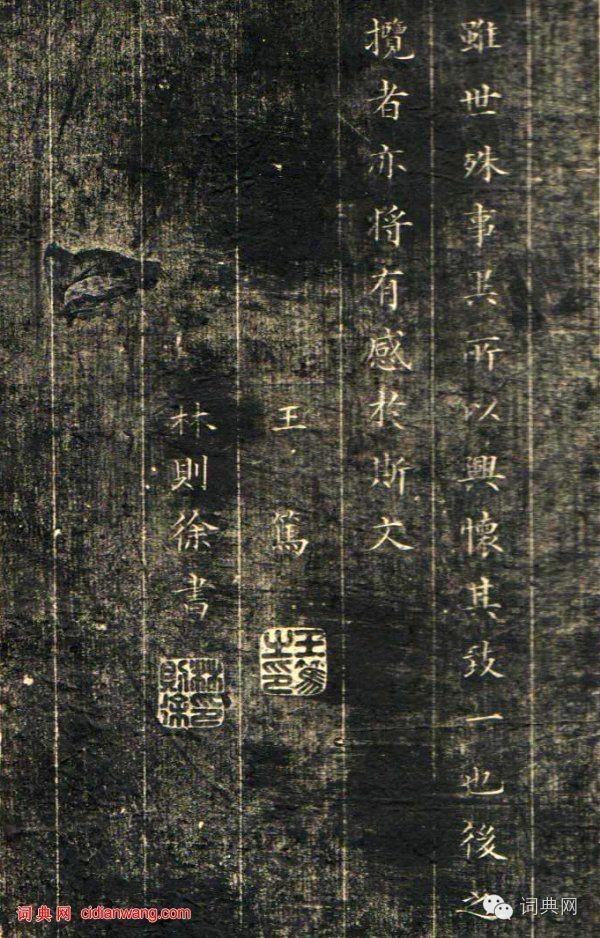 雖世殊事異所以興懷其致一也後之
攬者亦將有感於斯文
王篤
王篤之印
林則徐書
林則徐印
词典网 cidianwang.com
词典网